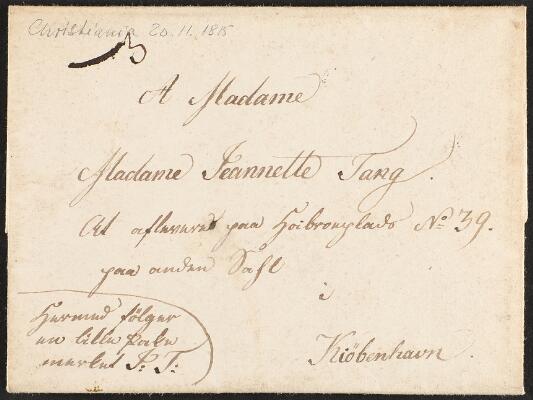 Christiania 20.11.1815
3
A Madame
Madame Jeannette Tang.
At afleveres paa Hoibroeplads No 39.
paa anden Sahl
i
Kiöbenhavn.
Hermed fölger
en lille Pakke
merket J: T: